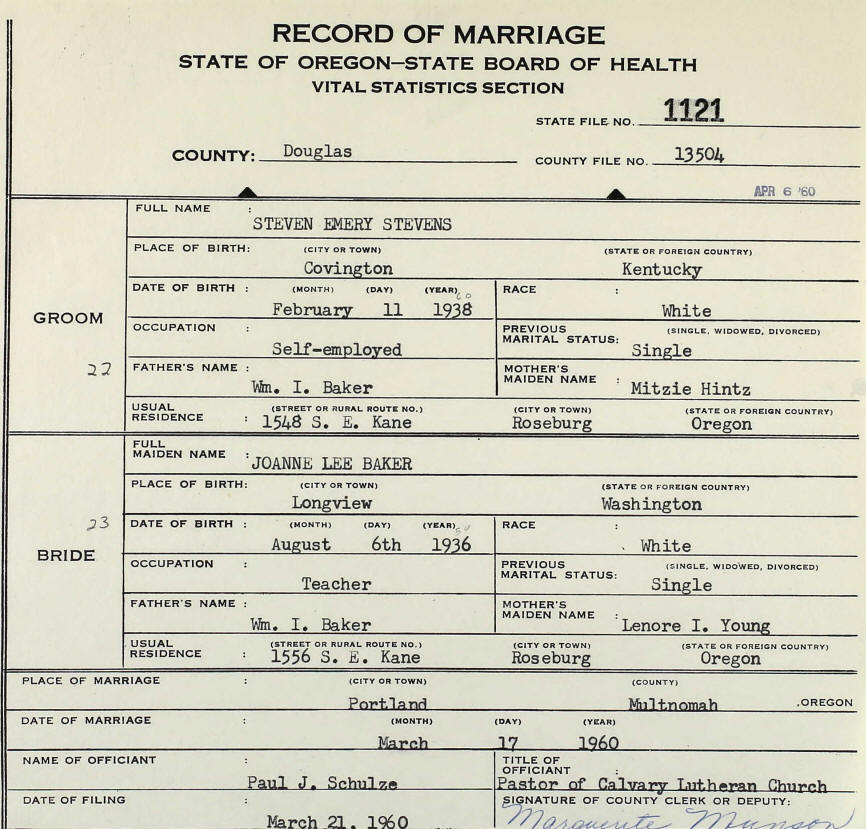 RECORD OF MARRIAGE
STATE OF OREGON—STATE BOARD OF HEALTH
VITAL STATISTICS SECTION
STATE FILE NO. 1121
COUNTY: Douglas COUNTY FILE NO. 13504
APR 6 '60
FULL NAME :
STEVEN EMERY STEVENS
PLACE OF BIRTH: (CITY OR TOWN) (STATE OR FOREIGN COUNTRY)
Covington Kentucky
DATE OF BIRTH : (MONTH) (DAY) (YEAR) 60 RACE :
February 11 1938 White
GROOM
OCCUPATION : PREVIOUS MARITAL STATUS: (SINGLE, WIDOWED, DIVORCED)
Self-employed Single
22
FATHER'S NAME : MOTHER'S MAIDEN NAME :
Wm. I. Baker Mitzie Hintz
USUAL RESIDENCE : (STREET OR RURAL ROUTE NO.) (CITY OR TOWN) (STATE OR FOREIGN COUNTRY)
1548 S. E. Kane Roseburg Oregon
FULL MAIDEN NAME :
JOANNE LEE BAKER
PLACE OF BIRTH: (CITY OR TOWN) (STATE OR FOREIGN COUNTRY)
Longview Washington
23
DATE OF BIRTH : (MONTH) (DAY) (YEAR) RACE :
August 6th 1936 White
BRIDE
OCCUPATION : PREVIOUS MARITAL STATUS: (SINGLE, WIDOWED, DIVORCED)
Teacher Single
FATHER'S NAME : MOTHER'S MAIDEN NAME :
Wm. I. Baker Lenore I. Young
USUAL RESIDENCE : (STREET OR RURAL ROUTE NO.) (CITY OR TOWN) (STATE OR FOREIGN COUNTRY)
1556 S. E. Kane Roseburg Oregon
PLACE OF MARRIAGE : (CITY OR TOWN) (COUNTY)
Portland Multnomah , OREGON
DATE OF MARRIAGE : (MONTH) (DAY) (YEAR)
March 17 1960
NAME OF OFFICIANT : TITLE OF OFFICIANT :
Paul J. Schulze Pastor of Calvary Lutheran Church
DATE OF FILING : SIGNATURE OF COUNTY CLERK OR DEPUTY:
March 21, 1960 Marguerite Munson